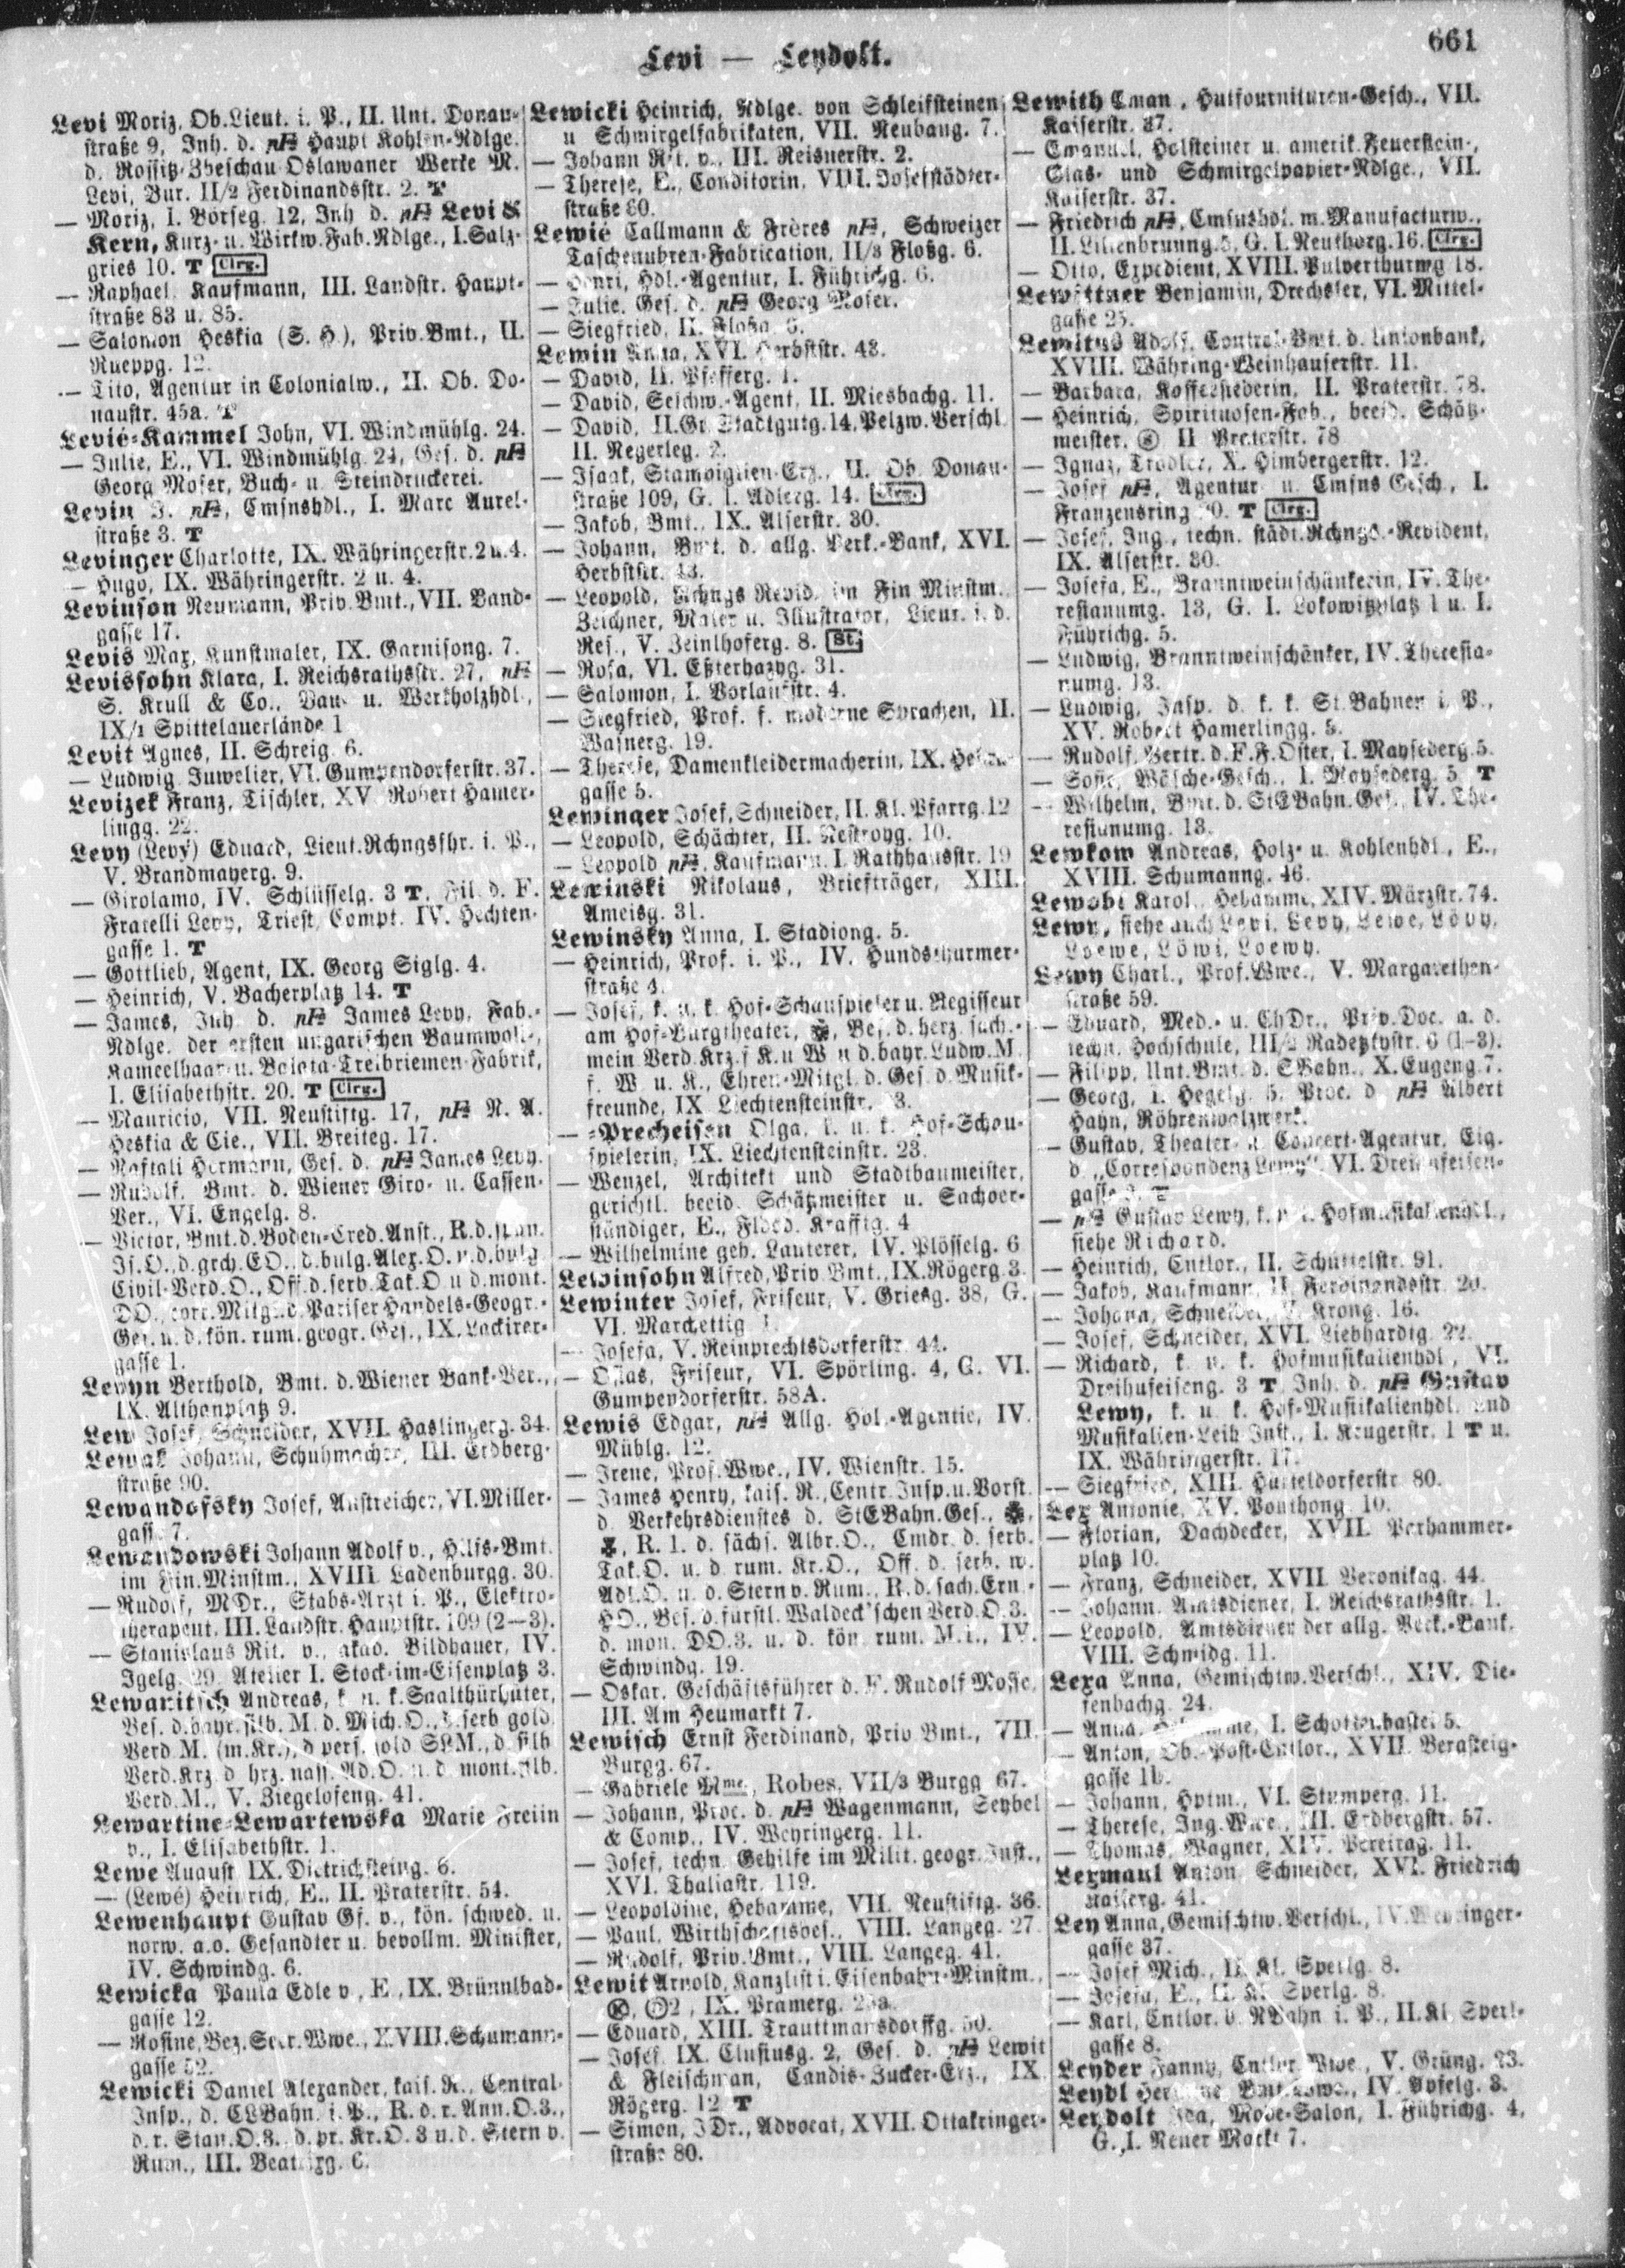 Levi — Leydolt.
661
Levi Moriz, Ob.Lieut. i. P., II. Unt. Donau-
straße 9, Inh. d. Haupt Kohlen-Ndlge.
d. Rossitz-Zbeschau Oslawaner Werke M.
Levi, Bur. II/2 Ferdinandsstr. 2. T
— Moriz, I. Börseg. 12, Inh d. Levi &
Kern, Kurz- u. Wirkw.Fab.Ndlge., I.Salz-
gries 10. T Clrg.
— Raphael, Kaufmann, III. Landstr. Haupt-
straße 83 u. 85.
— Salomon Heskia (S. H.), Priv.Bmt., II.
Rueppg. 12.
— Tito, Agentur in Colonialw., II. Ob. Do-
naustr. 45a. T
Levié-Kammel John, VI. Windmühlg. 24.
— Julie, E., VI. Windmühlg. 24, Ges. d.
Georg Moser, Buch- u. Steindruckerei.
Levin J. Cmsnshdl., I. Marc Aurel-
straße 3. T
Levinger Charlotte, IX. Währingerstr. 2 u. 4.
— Hugo, IX. Währingerstr. 2 u. 4.
Levinson Neumann, Priv.Bmt., VII. Band-
gasse 17.
Levis Max, Kunstmaler, IX. Garnisong. 7.
Levissohn Klara, I. Reichsrathsstr. 27,
S. Krull & Co., Bau- u. Werkholzhdl.,
IX/1 Spittelauerlände 1
Levit Agnes, II. Schreig. 6.
— Ludwig Juwelier, VI. Gumpendorferstr. 37.
Levizek Franz, Tischler, XV. Robert Hamer-
lingg. 22.
Levy (Levy) Eduard, Lieut.Rchngsfhr. i. P.,
V. Brandmayerg. 9.
— Girolamo, IV. Schlüsselg. 3 T, Fil. d. F.
Fratelli Levy, Triest, Compt. IV. Hechten-
gasse 1. T
— Gottlieb, Agent, IX. Georg Siglg. 4.
— Heinrich, V. Bacherplatz 14. T
— James, Inh. d. James Levy, Fab.-
Ndlge. der ersten ungarischen Baumwoll-,
Kameelhaar- u. Balata-Treibriemen-Fabrik,
I. Elisabethstr. 20. T Clrg.
— Mauricio, VII. Neustiftg. 17, N. A.
Heskia & Cie., VII. Breiteg. 17.
— Naftali Hermann, Ges. d. James Levy.
— Rudolf, Bmt. d. Wiener Giro- u. Cassen-
Ver., VI. Engelg. 8.
— Victor, Bmt.d.Boden-Cred.Anst., R.d.span.
Is.O., d.grch.EO., d.bulg.Alex.O. u.d.bulg.
Civil-Verd.O., Off.d.serb.Tak.O u d.mont.
DO., corr.Mitgl.d.Pariser Handels-Geogr.-
Ges. u. d. kön. rum. geogr. Ges., IX. Lackirer-
gasse 1.
Lewyn Berthold, Bmt. d. Wiener Bank-Ver.,
IX. Althanplatz 9.
Lew Josef, Schneider, XVII. Haslingerg. 34.
Lewak Johann, Schuhmacher, III. Erdberg-
straße 90.
Lewandofsky Josef, Anstreicher, VI. Miller-
gasse 7.
Lewandowski Johann Adolf v., Hilfs-Bmt.
im Fin.Minstm., XVIII. Ladenburgg. 30.
— Rudolf, MDr., Stabs-Arzt i. P., Elektro-
therapeut, III. Landstr. Hauptstr. 109 (2—3).
— Stanislaus Rit. v., akad. Bildhauer, IV.
Igelg. 29, Atelier I. Stock-im-Eisenplatz 3.
Lewaritsch Andreas, k. u. k. Saalthürhüter,
Bes. d.bayr.silb. M. d. Mich.O., d.serb gold.
Verd M. (m.Kr.), d pers. gold SLM., d silb
Verd.Krz d hrz. nass. Ad.O. u. d. mont.slb.
Verd.M., V. Ziegelofeng. 41.
Lewartine-Lewartewska Marie Freiin
v., I. Elisabethstr. 1.
Lewe August, IX. Dietrichsteing. 6.
— (Lewé) Heinrich, E., II. Praterstr. 54.
Lewenhaupt Gustav Gf. v., kön. schwed. u.
norw. a.o. Gesandter u. bevollm. Minister,
IV. Schwindg. 6.
Lewicka Paula Edle v., E., IX. Brünnlbad-
gasse 12.
— Rosine, Bez.Secr.Wwe., XVIII. Schumann-
gasse 52.
Lewicki Daniel Alexander, kais. R., Central-
Insp., d. CLBahn. i. P., R. d. r. Ann.O.3.,
d. r. Stan.O.3., d. pr. Kr.O. 3 u. d. Stern v.
Rum., III. Beatrixg. 6.
Lewicki Heinrich, Ndlge. von Schleifsteinen
u Schmirgelfabrikaten, VII. Neubaug. 7.
— Johann Rit. v., III. Reisnerstr. 2.
— Therese, E., Conditorin, VIII. Josefstädter-
straße 80.
Lewié Callmann & Frères Schweizer
Taschenuhren-Fabrication, II/3 Floßg. 6.
— Henri, Hdl.-Agentur, I. Führichg. 6.
— Julie, Ges. d. Georg Moser.
— Siegfried, II. Floßg. 6.
Lewin Anna, XVI. Herbststr. 43.
— David, II. Pfefferg. 1.
— David, Geschw.-Agent, II. Miesbachg. 11.
— David, II.Gr. Stadtgutg. 14, Pelzw.Verschl.
II. Negerleg. 2.
— Isaak, Stampiglien-Erz., II. Ob. Donau-
straße 109, G. I. Adlerg. 14. Clrg.
— Jakob, Bmt., IX. Alserstr. 30.
— Johann, Bmt. d. allg. Verk.-Bank, XVI.
Herbststr. 43.
— Leopold, Rchngs Revid. im Fin Minstm.
Zeichner, Maler u. Illustrator, Lieut. i. d.
Res., V. Zeinlhoferg. 8. St.
— Rosa, VI. Eßterhazyg. 31.
— Salomon, I. Vorlaufstr. 4.
— Siegfried, Prof. f. moderne Sprachen, II.
Wasnerg. 19.
— Therese, Damenkleidermacherin, IX.
gasse 5.
Lewinger Josef, Schneider, II. Kl. Pfarrg. 12
— Leopold, Schächter, II. Nestroyg. 10.
— Leopold Kaufmann, I. Rathhausstr. 19
Lewinski Nikolaus, Briefträger, XIII.
Ameisg. 31.
Lewinsky Anna, I. Stadiong. 5.
— Heinrich, Prof. i. P., IV. Hundsthurmer-
straße 4.
— Josef, k. u. k. Hof-Schauspieler u. Regisseur
am Hof-Burgtheater, Bes. d. herz. sach.-
mein Verd.Krz.f K.u W u d.bayr.Ludw.M.
f. W u. K., Ehren-Mitgl. d. Ges d. Musik-
freunde, IX Liechtensteinstr. 23.
— -Precheisen Olga, k. u. k. Hof-Schau-
spielerin, IX. Liechtensteinstr. 23.
— Wenzel, Architekt und Stadtbaumeister,
gerichtl. beeid. Schätzmeister u. Sachver-
ständiger, E., Flded. Krafftg. 4
— Wilhelmine geb. Lauterer, IV. Plösselg. 6
Lewinsohn Alfred, Priv Bmt., IX. Rögerg. 3.
Lewinter Josef, Friseur, V. Griesg. 38, G.
VI. Marchettig 1.
— Josefa, V. Reinprechtsdorferstr. 44.
— Osias, Friseur, VI. Spörling. 4, G. VI.
Gumpendorferstr. 58A.
Lewis Edgar, Allg. Hdl.-Agentie, IV.
Mühlg. 12.
— Irene, Prof. Wwe., IV. Wienstr. 15.
— James Henry, kais. R., Centr.Insp.u.Vorst.
d. Verkehrsdienstes d. StEBahn.Ges.,
R. 1. d. sächs. Albr.O., Cmdr. d. serb.
Tak.O. u. d rum. Kr.O., Off. d. serb. w.
Adl.O. u. d. Stern v. Rum., R. d. sach.Ern.-
HO., Bes. d. fürstl. Waldeck'schen Verd.O.3.
d. mon. DO.3. u. d. kön. rum. M.i., IV.
Schwindg. 19.
— Oskar, Geschäftsführer d. F. Rudolf Mosse,
III. Am Heumarkt 7.
Lewisch Ernst Ferdinand, Priv Bmt., VII.
Burgg. 67.
— Gabriele Mme, Robes, VII/3 Burgg 67.
— Johann, Proc. d. Wagenmann, Seybel
& Comp., IV. Weyringerg. 11.
— Josef, techn. Gehilfe im Milit. geogr. Inst.,
XVI. Thaliastr. 119.
— Leopoldine, Hebamme, VII. Neustiftg. 36.
— Paul, Wirthschaftsbes., VIII. Langeg. 27
— Rudolf, Priv.Bmt., VIII. Langeg. 41.
Lewit Arnold, Kanzlist i. Eisenbahn-Minstm.,
IX. Pramerg.
— Eduard, XIII. Trauttmansdorffg. 50.
— Josef, IX. Clusiusg. 2, Ges. d. Lewit
& Fleischman, Candis-Zucker-Erz., IX
Rögerg. 12 T
— Simon, JDr., Advocat, XVII. Ottakringer-
straße 80.
Lewith Eman., Hutfournituren-Gesch., VII.
Kaiserstr. 37.
— Emanuel, Holsteiner u. amerik Feuerstein-,
Glas- und Schmirgelpapier-Ndlge., VII.
Kaiserstr. 37.
— Friedrich Cmsnshdl. m. Manufacturw.,
II. Lilienbrunng. 5, G. I. Neuthorg. 16. Clrg.
— Otto, Expedient, XVIII. Pulverthurmg 18.
Lewittner Benjamin, Drechsler, VI. Mittel-
gasse 25.
Lewitus Adolf, Control-Bmt. d. Unionbank,
XVIII. Währing-Weinhauserstr. 11.
— Barbara, Kaffeesiederin, II. Praterstr. 78.
— Heinrich, Spirituosen-Fab., beeid. Schätz-
meister, II Praterstr. 78
— Ignaz, Trödler, X. Himbergerstr. 12.
— Josef Agentur u. Cmsns Gesch., I.
Franzensring 20. T Clrg.
— Josef, Ing., techn. städt.Rchngs.-Revident,
IX. Alserstr. 30.
— Josefa, E., Branntweinschänkerin, IV. The-
resianumg. 13, G. I. Lobkowitzplatz 1 u. I.
Führichg. 5.
— Ludwig, Branntweinschänker, IV. Theresia-
numg. 13.
— Ludwig, Insp. d. k. k. St.Bahnen i. P.,
XV. Robert Hamerlingg. 3.
— Rudolf, Vertr. d. F. F. Oster, I. Maysederg. 5.
— Sofie, Wäsche-Gesch., I. Maysederg. 5 T
— Wilhelm, Bmt. d. StEBahn.Ges., IV. The-
resianumg. 13.
Lewkow Andreas, Holz- u. Kohlenhdl., E.,
XVIII. Schumanng. 46.
Lewobi Karol., Hebamme, XIV. Märzstr. 74.
Lewy, siehe auch Levi, Levy, Lewe, Lövy,
Loewe, Löwi, Loewy.
Lewy Charl., Prof.Wwe., V. Margarethen-
straße 59.
— Eduard, Med.- u. ChDr., Priv.Doc. a. d.
techn. Hochschule, III/2 Radetzkystr. 6 (1–3).
— Filipp, Unt.Bmt. d. SBahn., X. Eugeng. 7.
— Georg, I. Hegelg. 5, Proc. d Albert
Hahn, Röhrenwalzwerk.
— Gustav, Theater- u. Concert-Agentur, Eig.
d. „Correspondenz Lewy", VI. Dreihufeisen-
gasse
— Gustav Lewy, k. u. k. Hofmusikalienhdl.,
siehe Richard.
— Heinrich, Cntlor., II. Schüttelstr. 91.
— Jakob, Kaufmann, II. Ferdinandsstr. 20.
— Johana, Schneider, Krong. 16.
— Josef, Schneider, XVI. Liebhardtg. 22.
— Richard, k. u. k. Hofmusikalienhdl., VI.
Dreihufeiseng. 3 T, Inh. d. Gustav
Lewy, k. u. k. Hof-Musikalienhdl. und
Musikalien-Leih Inst., I. Krugerstr. 1 T u.
IX. Währingerstr. 17.
— Siegfried, XIII. Hütteldorferstr 80.
Lex Antonie, XV. Pouthong. 10.
— Florian, Dachdecker, XVII. Parhammer-
platz 10.
— Franz, Schneider, XVII. Veronikag. 44.
— Johann, Amtsdiener, I. Reichsrathsstr. 1.
— Leopold, Amtsdiener der allg. Verk.-Bank,
VIII. Schmidg. 11.
Lexa Anna, Gemischtw.Verschl., XIV. Die-
fenbachg. 24.
— Anna, Hebamme, I. Schottenbastei 5.
— Anton, Ob.-Post-Cntlor., XVII. Beraßteig-
gasse
— Johann, Hptm., VI. Stumperg. 11.
— Therese, Ing.Wwe., III. Erdbergstr. 57.
— Thomas, Wagner, XIV. Pereirag. 11.
Lexmaul Anton, Schneider, XVI. Friedrich
Kaiserg. 41.
Ley Anna, Gemischtw.Verschl., IV. Weyringer-
gasse 37.
— Josef Mich., II. Kl. Sperlg. 8.
— Josefa, E., II. Kl. Sperlg. 8.
— Karl, Cntlor. d. NBahn i. P., II. Kl Sperl-
gasse 8.
Leyder Fanny, Cntlor. Wwe., V. Grüng. 23.
Leydl Hermine, Bmt.Wwe., IV. Apfelg. 3.
Leydolt Ida, Mode-Salon, I. Führichg. 4,
G. I. Neuer Markt 7.